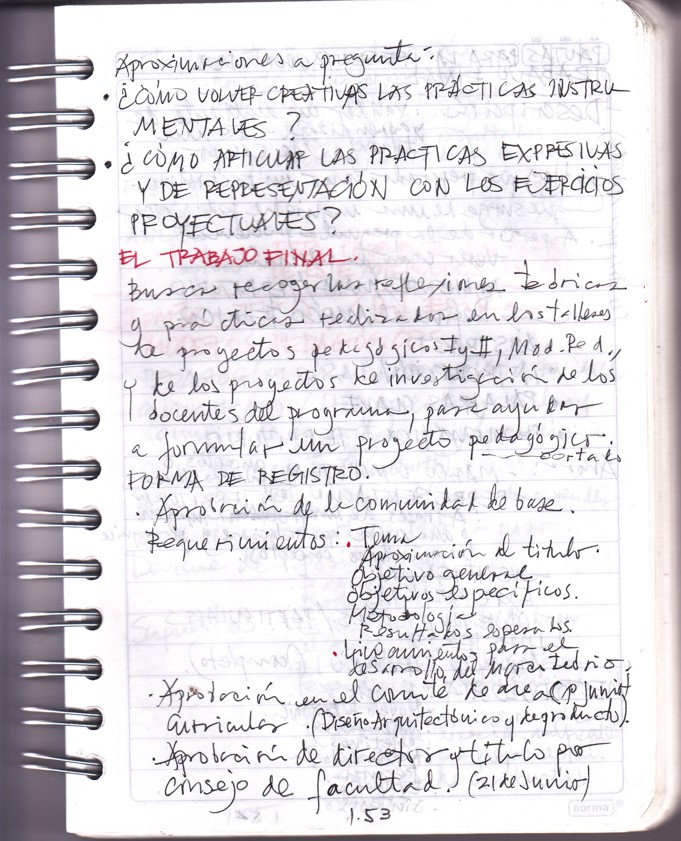 Aproximaciones a pregunta:
• ¿CÓMO VOLVER CREATIVAS LAS PRÁCTICAS INSTRU
MENTALES?
• ¿CÓMO ARTICULAR LAS PRACTICAS EXPRESIVAS
Y DE REPRESENTACIÓN CON LOS EJERCICIOS
PROYECTUALES?
EL TRABAJO FINAL.
Busca recoger las reflexiones teóricas
y prácticas realizadas en los talleres
de proyectos pedagógicos I y II, Mod. Ped.,
y de los proyectos de investigación de los
docentes del programa, para ayudar
a formular un proyecto pedagógico.
FORMA DE REGISTRO.
• Aprobación de la comunidad de base.
Requerimientos: • Tema
Aproximación al titulo.
Objetivo general
Objetivos específicos.
Metodología
Resultados esperados.
• Lineamientos para el
desarrollo del marco teórico.
• Aprobación en el comité de area
curricular. (Diseño Arquitectónico y de producto).
• Aprobación de director y título por
consejo de facultad. (21 de Junio)
1.53